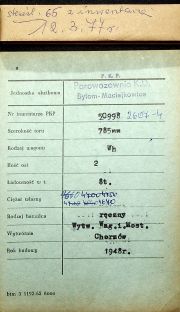 skreśl. 65 z inwentarza
12.3.77r.
P. K. P.
Jednostka służbowa Parowozownia K.D.
Bytom-Maciejkowice
Nr inwentarza PKP 50998 2607-4
Szerokość toru 785mm
Rodzaj wagonu Wh
Ilość osi 2
Ładowność w t. 8t.
Ciężar własny
Rodzaj hamulca ręczny
Wytwórnia Wytw. Wag. i Most.
Chorzów
Rok budowy 1948r.